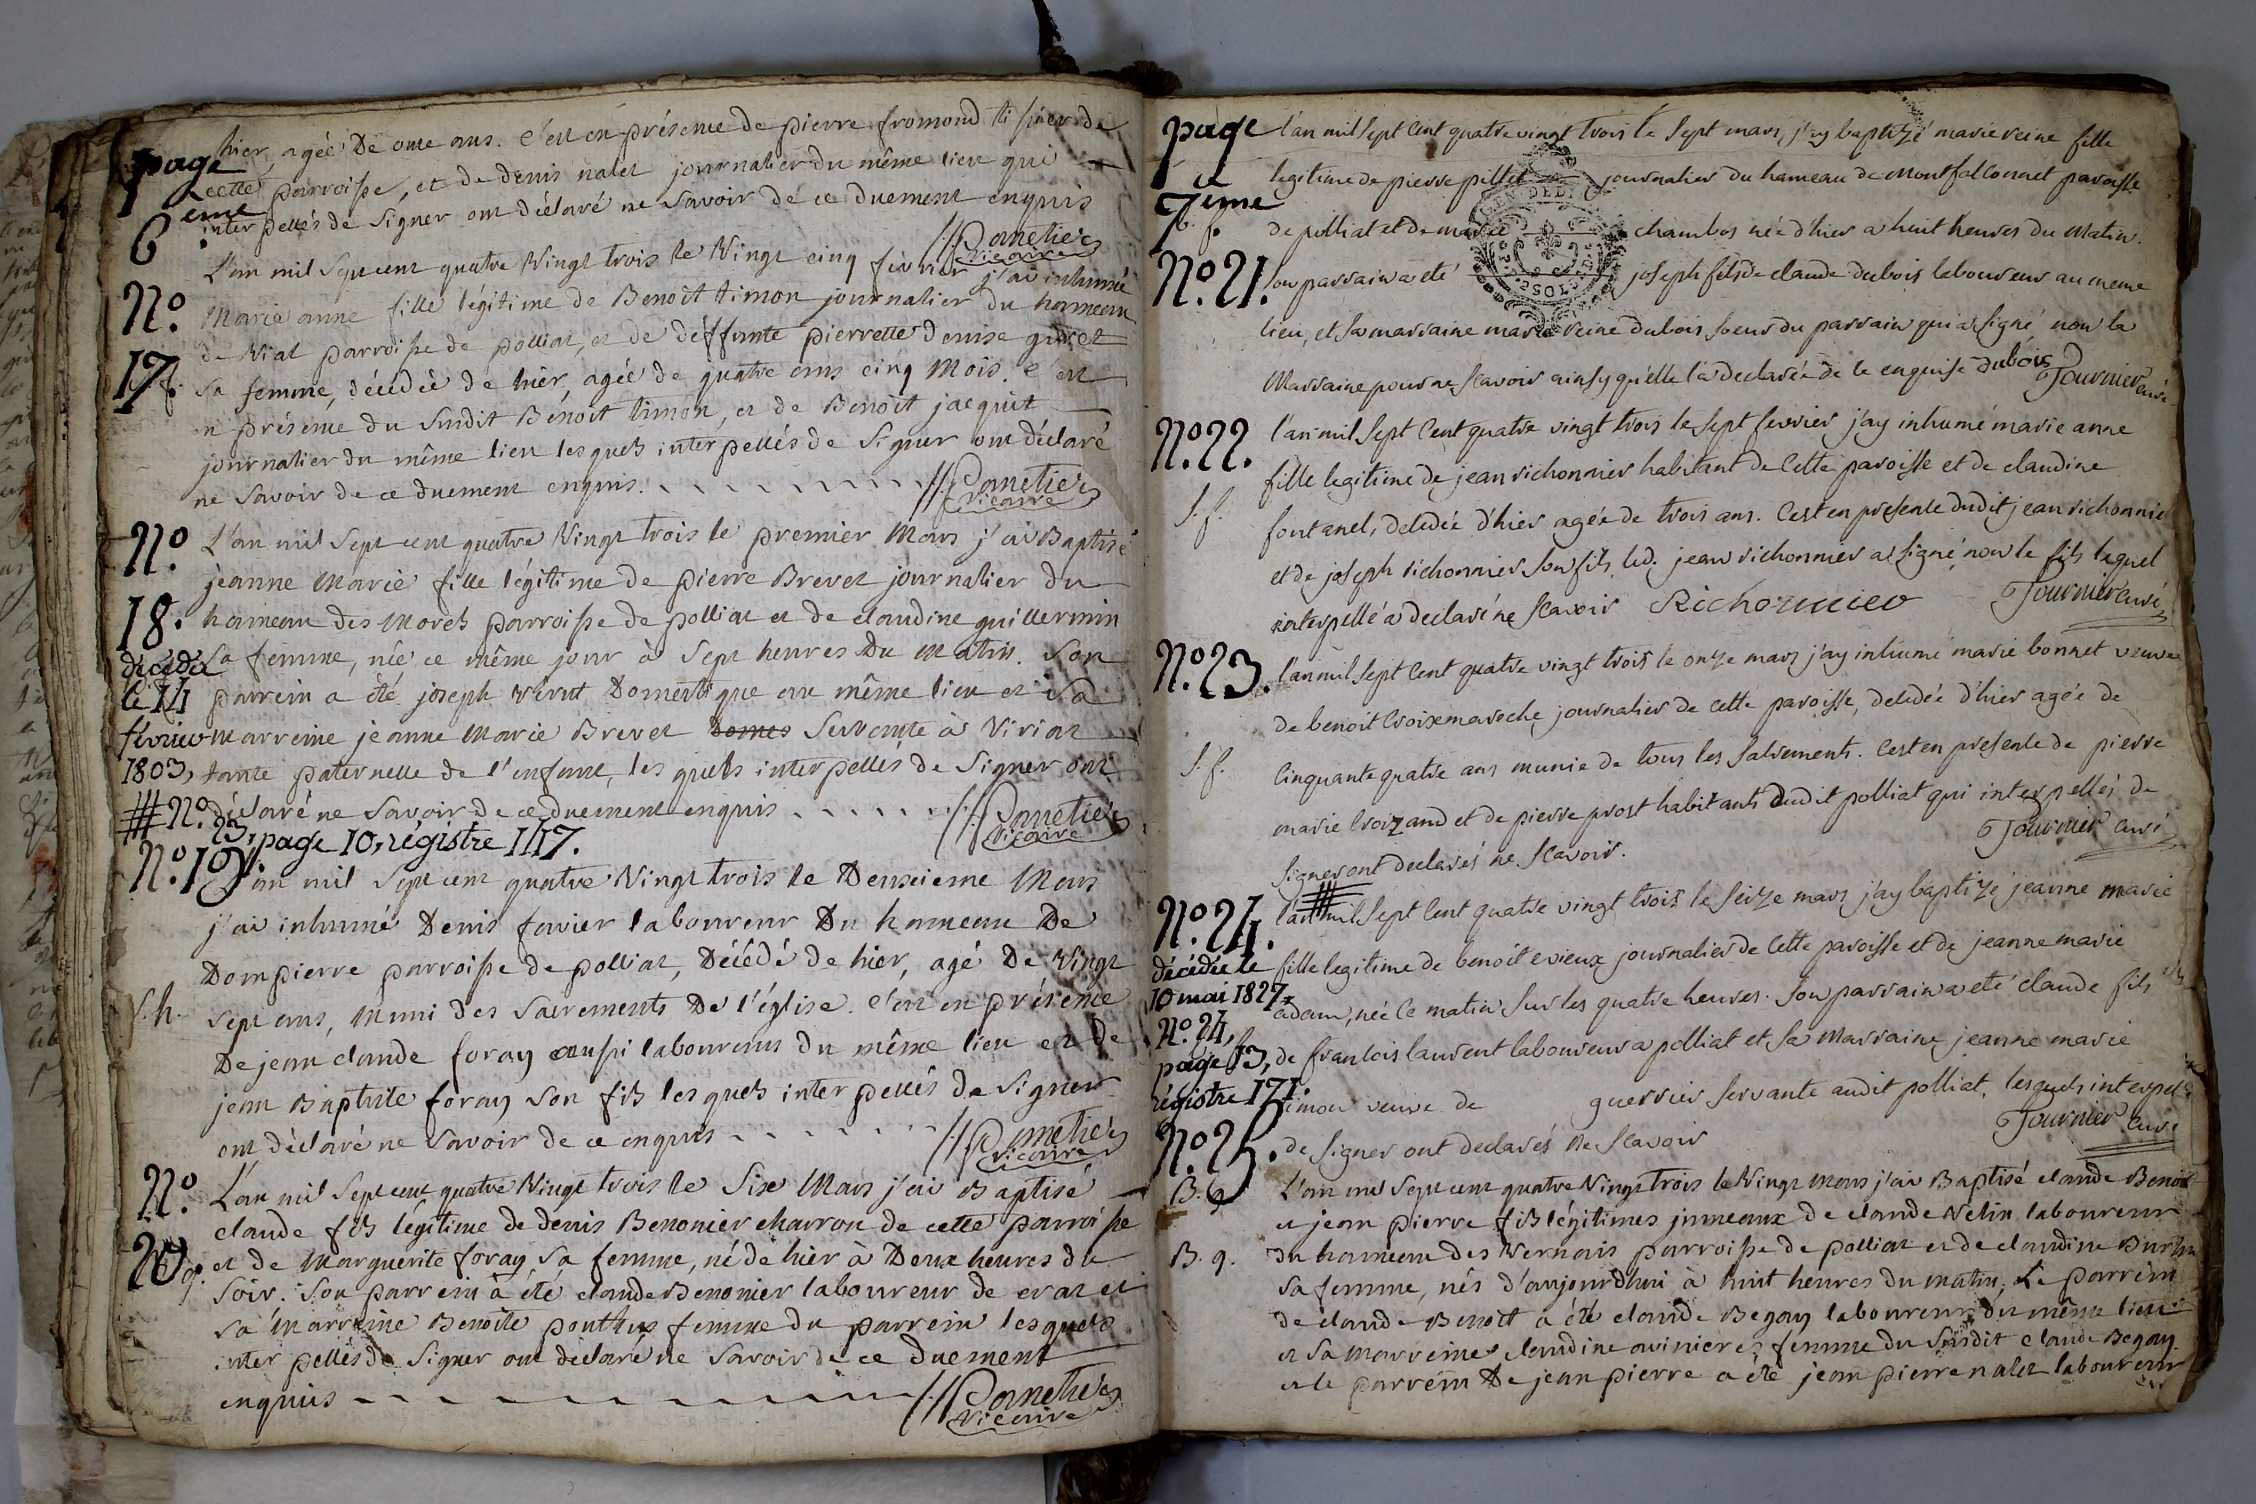 page
6 eme
hier, agée de onze ans. c'est en présence de pierre fromond
cette parroisse, et de denis nalet journalier du même lieu qui
interpellés de signer ont déclaré ne savoir de ce duement enquis
Cometier
vicaire
No. 17.
L'an mil sept cent quatre vingt trois le vingt cinq fevrier j'ai inhumé
marie anne fille légitime de Benoit timon journalier du hameau
de vial parroisse de polliat, et de deffunte pierrette denise
sa femme, décédée de hier, agée de quatre ans cinq mois. c'est
en présence du susdit Bénoit timon, et de Benoit jacquet
journalier du même lieu lesquels interpellés de signer ont déclaré
ne savoir de ce duement enquis.
Cometier
vicaire
No. 18.
L'an mil sept cent quatre vingt trois le premier mars j'ai Baptisé
jeanne marie fille légitime de pierre Brevet journalier du
hameau des morels parroisse de polliat et de claudine guillermin
sa femme, née ce même jour à sept heures du matin. son
parrein a été joseph domestique au même lieu et sa
marreine jeanne marie Brevet servante à viriat
tante paternelle de l'enfant, lesquels interpellés de signer ont
déclaré ne savoir de ce duement enquis
Cometier
vicaire
décédée
le 14
février
1803,
No.
23, page 10, régistre 117.
No. 19.
L'an mil sept cent quatre vingt trois le deuxieme mars
j'ai inhumé denis favier laboureur du hameau de
Dompierre parroisse de polliat, décédé de hier, agé de vingt
s.h.
sept ans, muni des sacrements de l'église. c'est en présence
de jean claude foray aussi laboureur du même lieu et de
jean Baptiste foray son fils lesquels interpellés de signer
ont déclaré ne savoir de ce enquis
Cometier
vicaire
No. 20.
L'an mil sept cent quatre vingt trois le six mars j'ai Baptisé
claude fils légitime de denis Benonier charron de cette parroisse
et de marguerite foray sa femme, né de hier à deux heures du
soir. son parrein à été claude Benonier laboureur de cras et
sa marreine Benoite ponthus femme du parrein lesquels
interpellés de signer ont déclaré ne savoir de ce duement
enquis
Cometier
vicaire
page
7 eme
b. f.
No. 21.
l'an mil sept cent quatre vingt trois le sept mars, j'ay baptizé marie reine fille
legitime de pierre pillet journalier du hameau de montfalconnet paroisse
de polliat et de marie chambos née d'hier a huit heures du matin.
son parrain a eté joseph fils de claude dubois laboureur au meme
lieu, et sa marraine marie reine dubois soeur du parrain qui a signé non la
marraine pour ne scavoir ainsy qu'elle l'a declarée de ce enquise dubois
Tournier curé
No. 22.
l'an mil sept cent quatre vingt trois le sept fevrier j'ay inhumé marie anne
fille legitime de jean richonnier habitant de cette paroisse et de claudine
s. f.
fontanel, decedée d'hier agée de trois ans. c'est en presence dudit jean richonnier
et de joseph richonnier son fils, led. jean richonnier a signé non le fils lequel
interpellé a declaré ne scavoir Richonnier
Tournier curé
No. 23.
l'an mil sept cent quatre vingt trois le onze mars j'ay inhumé marie bonnet veuve
de benoit croixmaroche journalier de cette paroisse, decedée d'hier agée de
s. f.
cinquante quatre ans munie de tous les sacrements. c'est en presence de pierre
marie croizand et de pierre prost habitants dudit polliat qui interpellés de
signer ont declarés ne scavoir.
Tournier curé
No. 24.
l'an mil sept cent quatre vingt trois le seize mars j'ay baptizé jeanne marie
fille legitime de benoit evieux journalier de cette paroisse et de jeanne marie
adam, née ce matin sur les quatre heures. son parrain a eté claude fils
de francois laurent laboureur a polliat et sa marraine jeanne marie
timon veuve de guerrier servante audit polliat, lesquels interpellés
de signer ont declarés ne scavoir
Tournier curé
décédée le
10 mai 1827,
No. 24,
page 13,
régistre 171.
No. 25.
B. g.
L'an mil sept cent quatre vingt trois le vingt mars j'ai Baptisé claude Benoit
et jean pierre fils légitimes jumeaux de claude velin laboureur
B. g.
du hameau des vernais parroisse de polliat et de claudine
sa femme, nés d'aujourdhui à huit heures du matin. Le parrein
de claude Benoit a été claude Begay laboureur du même lieu
et sa marreine claudine femme du susdit claude Begay
et le parrein de jean pierre a été jean pierre nalet laboureur